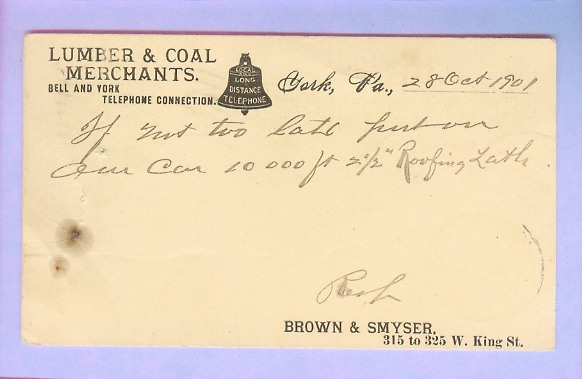 LUMBER & COAL
MERCHANTS.
BELL AND YORK
TELEPHONE CONNECTION.
LOCAL
LONG
DISTANCE
TELEPHONE
York, Pa., 28 Oct 1901
If not too late put on
our Car 10 000 ft 2 1/2" Roofing Lath
Rush
BROWN & SMYSER,
315 to 325 W. King St.